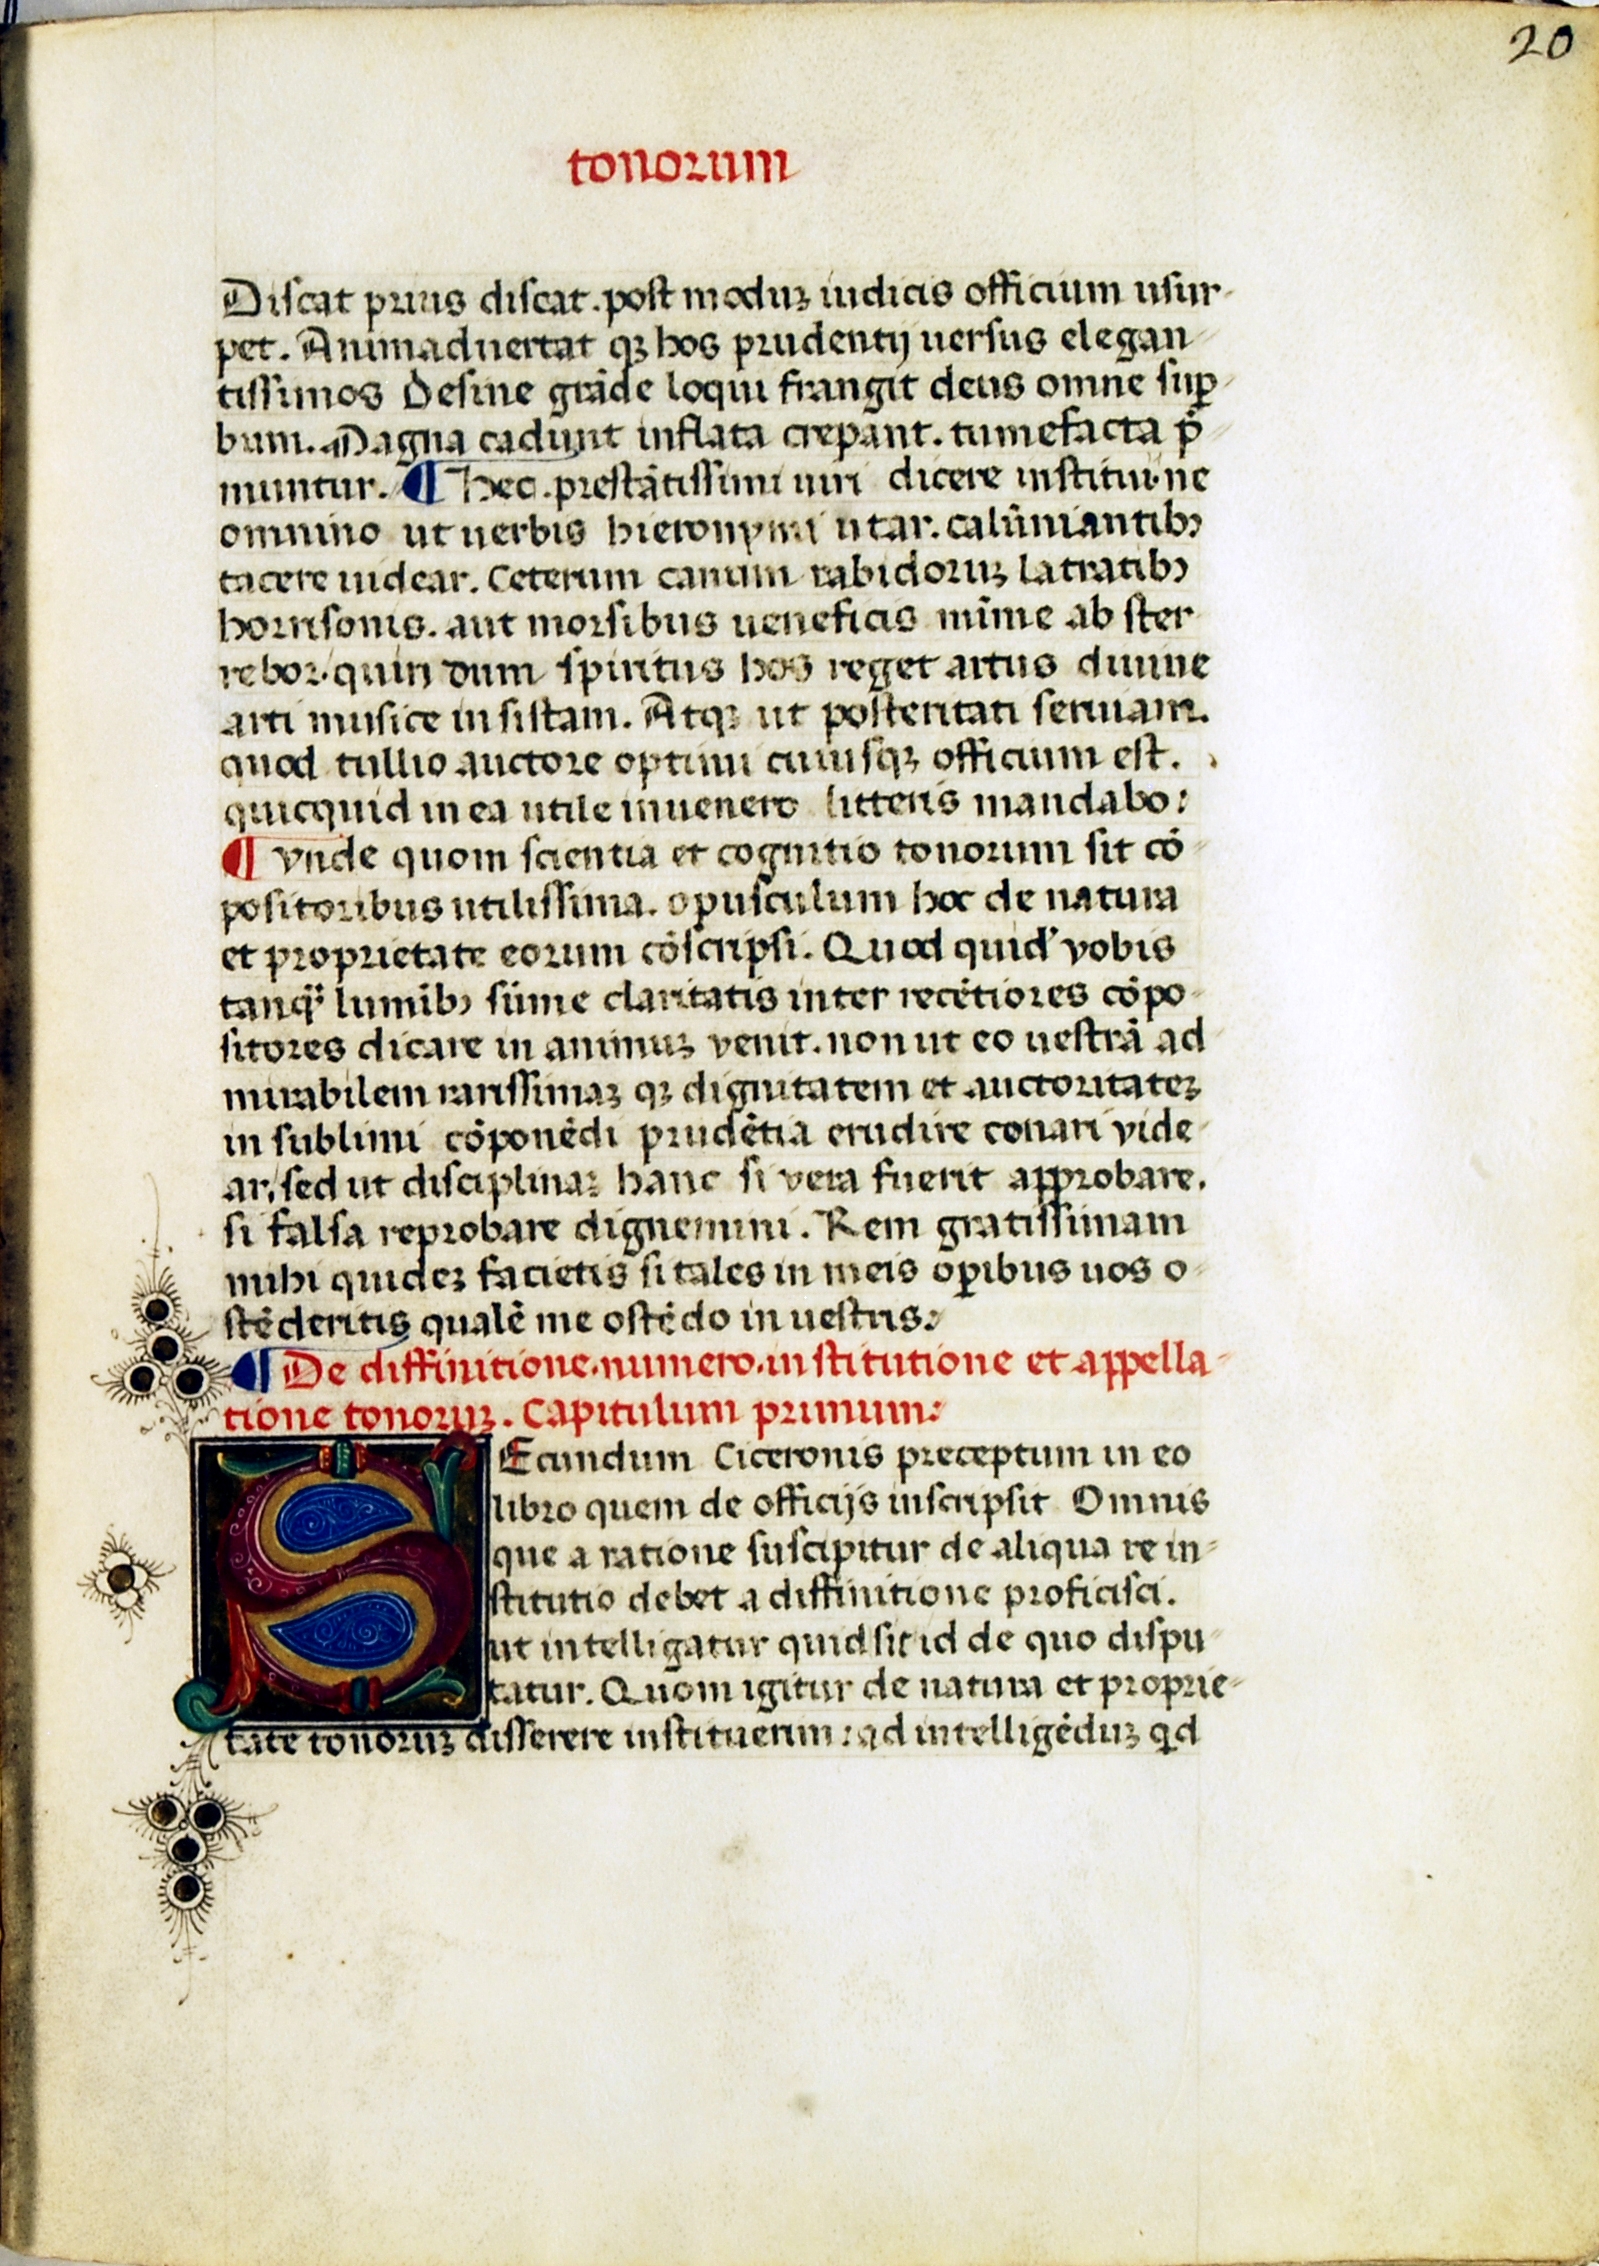 20
tonorum
Discat prius discat. post moduꝫ iudicis officium usur-
pet. Animaduertat qꝫ hos prudentij uersus elegan-
tissimos Desine grāde loqui frangit deus omne suꝑ-
bum. Magna cadunt inflata crepant. tumefacta p̄-
muntur. ¶ Hec. prestātissimi uiri dicere institui. ne
omnino ut uerbis hieronymi utar. calūniantibꝫ
tacere uidear. Ceterum canum rabidoruꝫ latratibꝫ
horrisonis. aut morsibus ueneficis mīme ab ster-
rebor. quin dum spiritus hos reget artus diuine
arti musice insistam. Atqꝫ ut posteritati seruiam.
quod tullio auctore optimi cuiusqꝫ officium est.
quicquid in ea utile inuenero litteris mandabo:
¶ vnde quom scientia et cognitio tonorum sit cō-
positoribus utilissima. opusculum hoc de natura
et proprietate eorum cōscripsi. Quod quid' vobis
tanqͣꝫ lumībꝫ sūme claritatis inter recētiores cōpo-
sitores dicare in animuꝫ venit. non ut eo uestrā ad-
mirabilem rarissimaꝫ qꝫ dignitatem et auctoritateꝫ
in sublimi cōponēdi prudētia erudire conari vide-
ar, sed ut disciplinaꝫ hanc si vera fuerit approbare.
si falsa reprobare dignemini. Rem gratissimam
mihi quideꝫ facietis si tales in meis oꝑibus uos o-
stēderitis qualē me ostēdo in uestris:
¶ De diffinitione. numero. institutione et appella-
tione tonoruꝫ. Capitulum primum:
SEcundum Ciceronis preceptum in eo
libro quem de officijs inscripsit Omnis
que a ratione suscipitur de aliqua re in-
stitutio debet a diffinitione proficisci.
ut intelligatur quid sit id de quo dispu-
tatur. Quom igitur de natura et proprie-
tate tonoruꝫ disserere instituerim: ad intelligēduꝫ qͥd